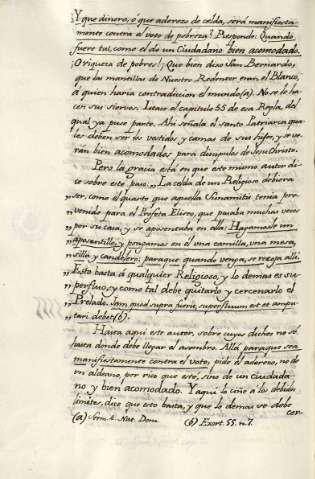 ¿Y que dinero, ó que aderezo de celda, será manifiesta-
mente contra el voto de pobreza? Responde: Quando
fuere tal, como el de un Ciudadano bien acomodado.
¡O riqueza de pobres! ¡Que bien dixo San Bernardo,
que las mantillas de Nuestro Redentor eran el Blanco,
á quien haria contradicion el mundo(a). No se lo ha-
cen sus siervos. Lease el capitulo 55 de esa Regla, del
qual ya puse parte. Ahi señala el santo Patriarca qua-
les deben ser los vestidos y camas de sus hijos, y se ve-
rán bien acomodados para discipulos de Jesu Christo.
Pero la gracia está en que este mismo autor di-
ce sobre este pasi. „La celda de un Religioso debiera
„ser, como el quarto que aquella Sunamitis tenia pre-
„venido para el Profeta Eliseo, que pasaba muchas veces
„por su casa, y se aposentaba en ella: Hagamosle un
„aposentillo, y pongamos en el una camilla, una mesa,
„silla y candelero; paraque quando venga, se recoja allí.
„Esto basta á qualquier Religioso, y lo demas es su-
„perfluo, y como tal debe quitarlo y cercenarlo el
„Prelado. Nam quod supra fuerit, superfluum est et ampu-
tari debet(b).
Hasta aqui este autor, sobre cuyos dichos no sé,
hasta donde debe llegar el asombro. Allá paraque sea
manifiestamente contra el Voto, pide el aderezo, no de
un aldeano, por rico que esté, sino de un ciudada
no y bien acomodado. Y aqui lo ciñe á los debidos
limites, dice que esto basta, y que lo demas se debe
cer-
(a) Serm. 4. Nat. Dom. (b) Exort. 55. n. 7.